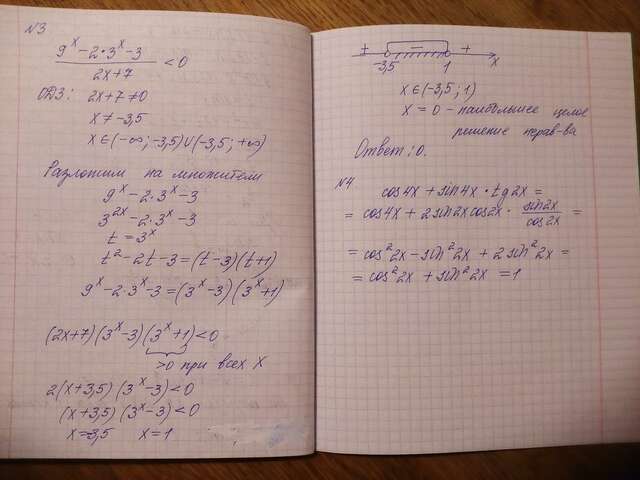 N3
9^x - 2·3^x - 3
/ 2x+7 < 0
ОДЗ: 2x+7≠0
x≠-3,5
x∈(-∞;-3,5)∪(-3,5;+∞)
Разложим на множители
9^x - 2·3^x - 3
3^2x - 2·3^x - 3
t = 3^x
t² - 2t - 3 = (t-3)(t+1)
9^x - 2·3^x - 3 = (3^x - 3)(3^x + 1)
(2x+7)(3^x - 3)(3^x + 1) < 0
>0 при всех x
2(x+3,5)(3^x - 3) < 0
(x+3,5)(3^x - 3) < 0
x=-3,5 x=1
+ - +
-3,5 1 x
x∈(-3,5;1)
x = 0 - наибольшее целое
решение нерав-ва
Ответ: 0.
N4
cos4x + sin4x · tg2x =
= cos4x + 2sin2x cos2x · sin2x/cos2x =
= cos²2x - sin²2x + 2sin²2x =
= cos²2x + sin²2x = 1